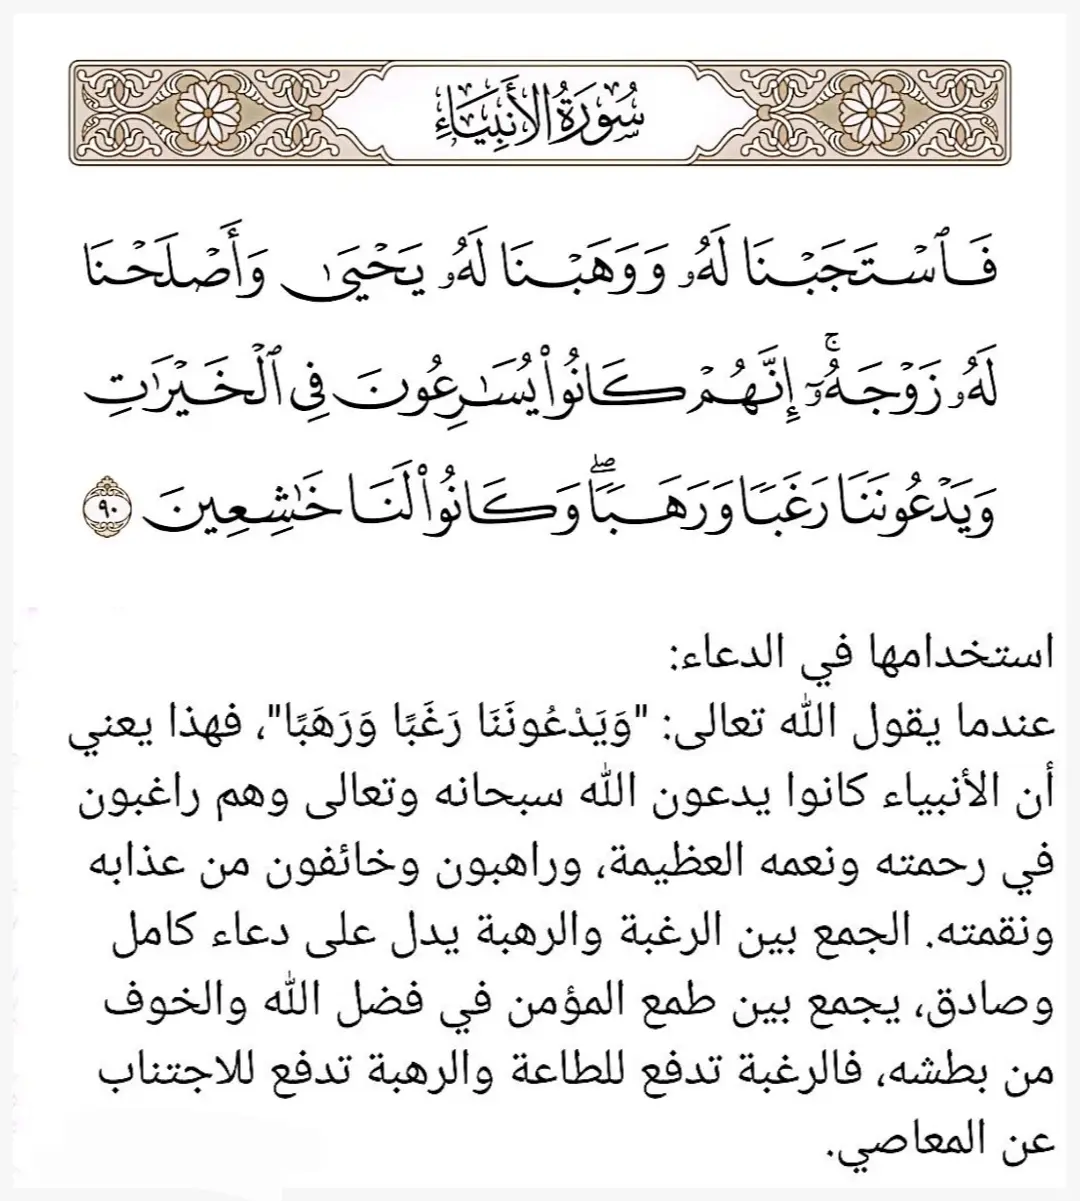 سُورَةُ الأَنبِيَاءِ
فَٱسۡتَجَبۡنَا لَهُۥ وَوَهَبۡنَا لَهُۥ يَحۡيَىٰ وَأَصۡلَحۡنَا
لَهُۥ زَوۡجَهُۥٓۚ إِنَّهُمۡ كَانُواْ يُسَٰرِعُونَ فِي ٱلۡخَيۡرَٰتِ
وَيَدۡعُونَنَا رَغَبٗا وَرَهَبٗاۖ وَكَانُواْ لَنَا خَٰشِعِينَ ٩٠
استخدامها في الدعاء:
عندما يقول الله تعالى: "وَيَدْعُونَنَا رَغَبًا وَرَهَبًا"، فهذا يعني
أن الأنبياء كانوا يدعون الله سبحانه وتعالى وهم راغبون
في رحمته ونعمه العظيمة، وراهبون وخائفون من عذابه
ونقمته. الجمع بين الرغبة والرهبة يدل على دعاء كامل
وصادق، يجمع بين طمع المؤمن في فضل الله والخوف
من بطشه، فالرغبة تدفع للطاعة والرهبة تدفع للاجتناب
عن المعاصي.